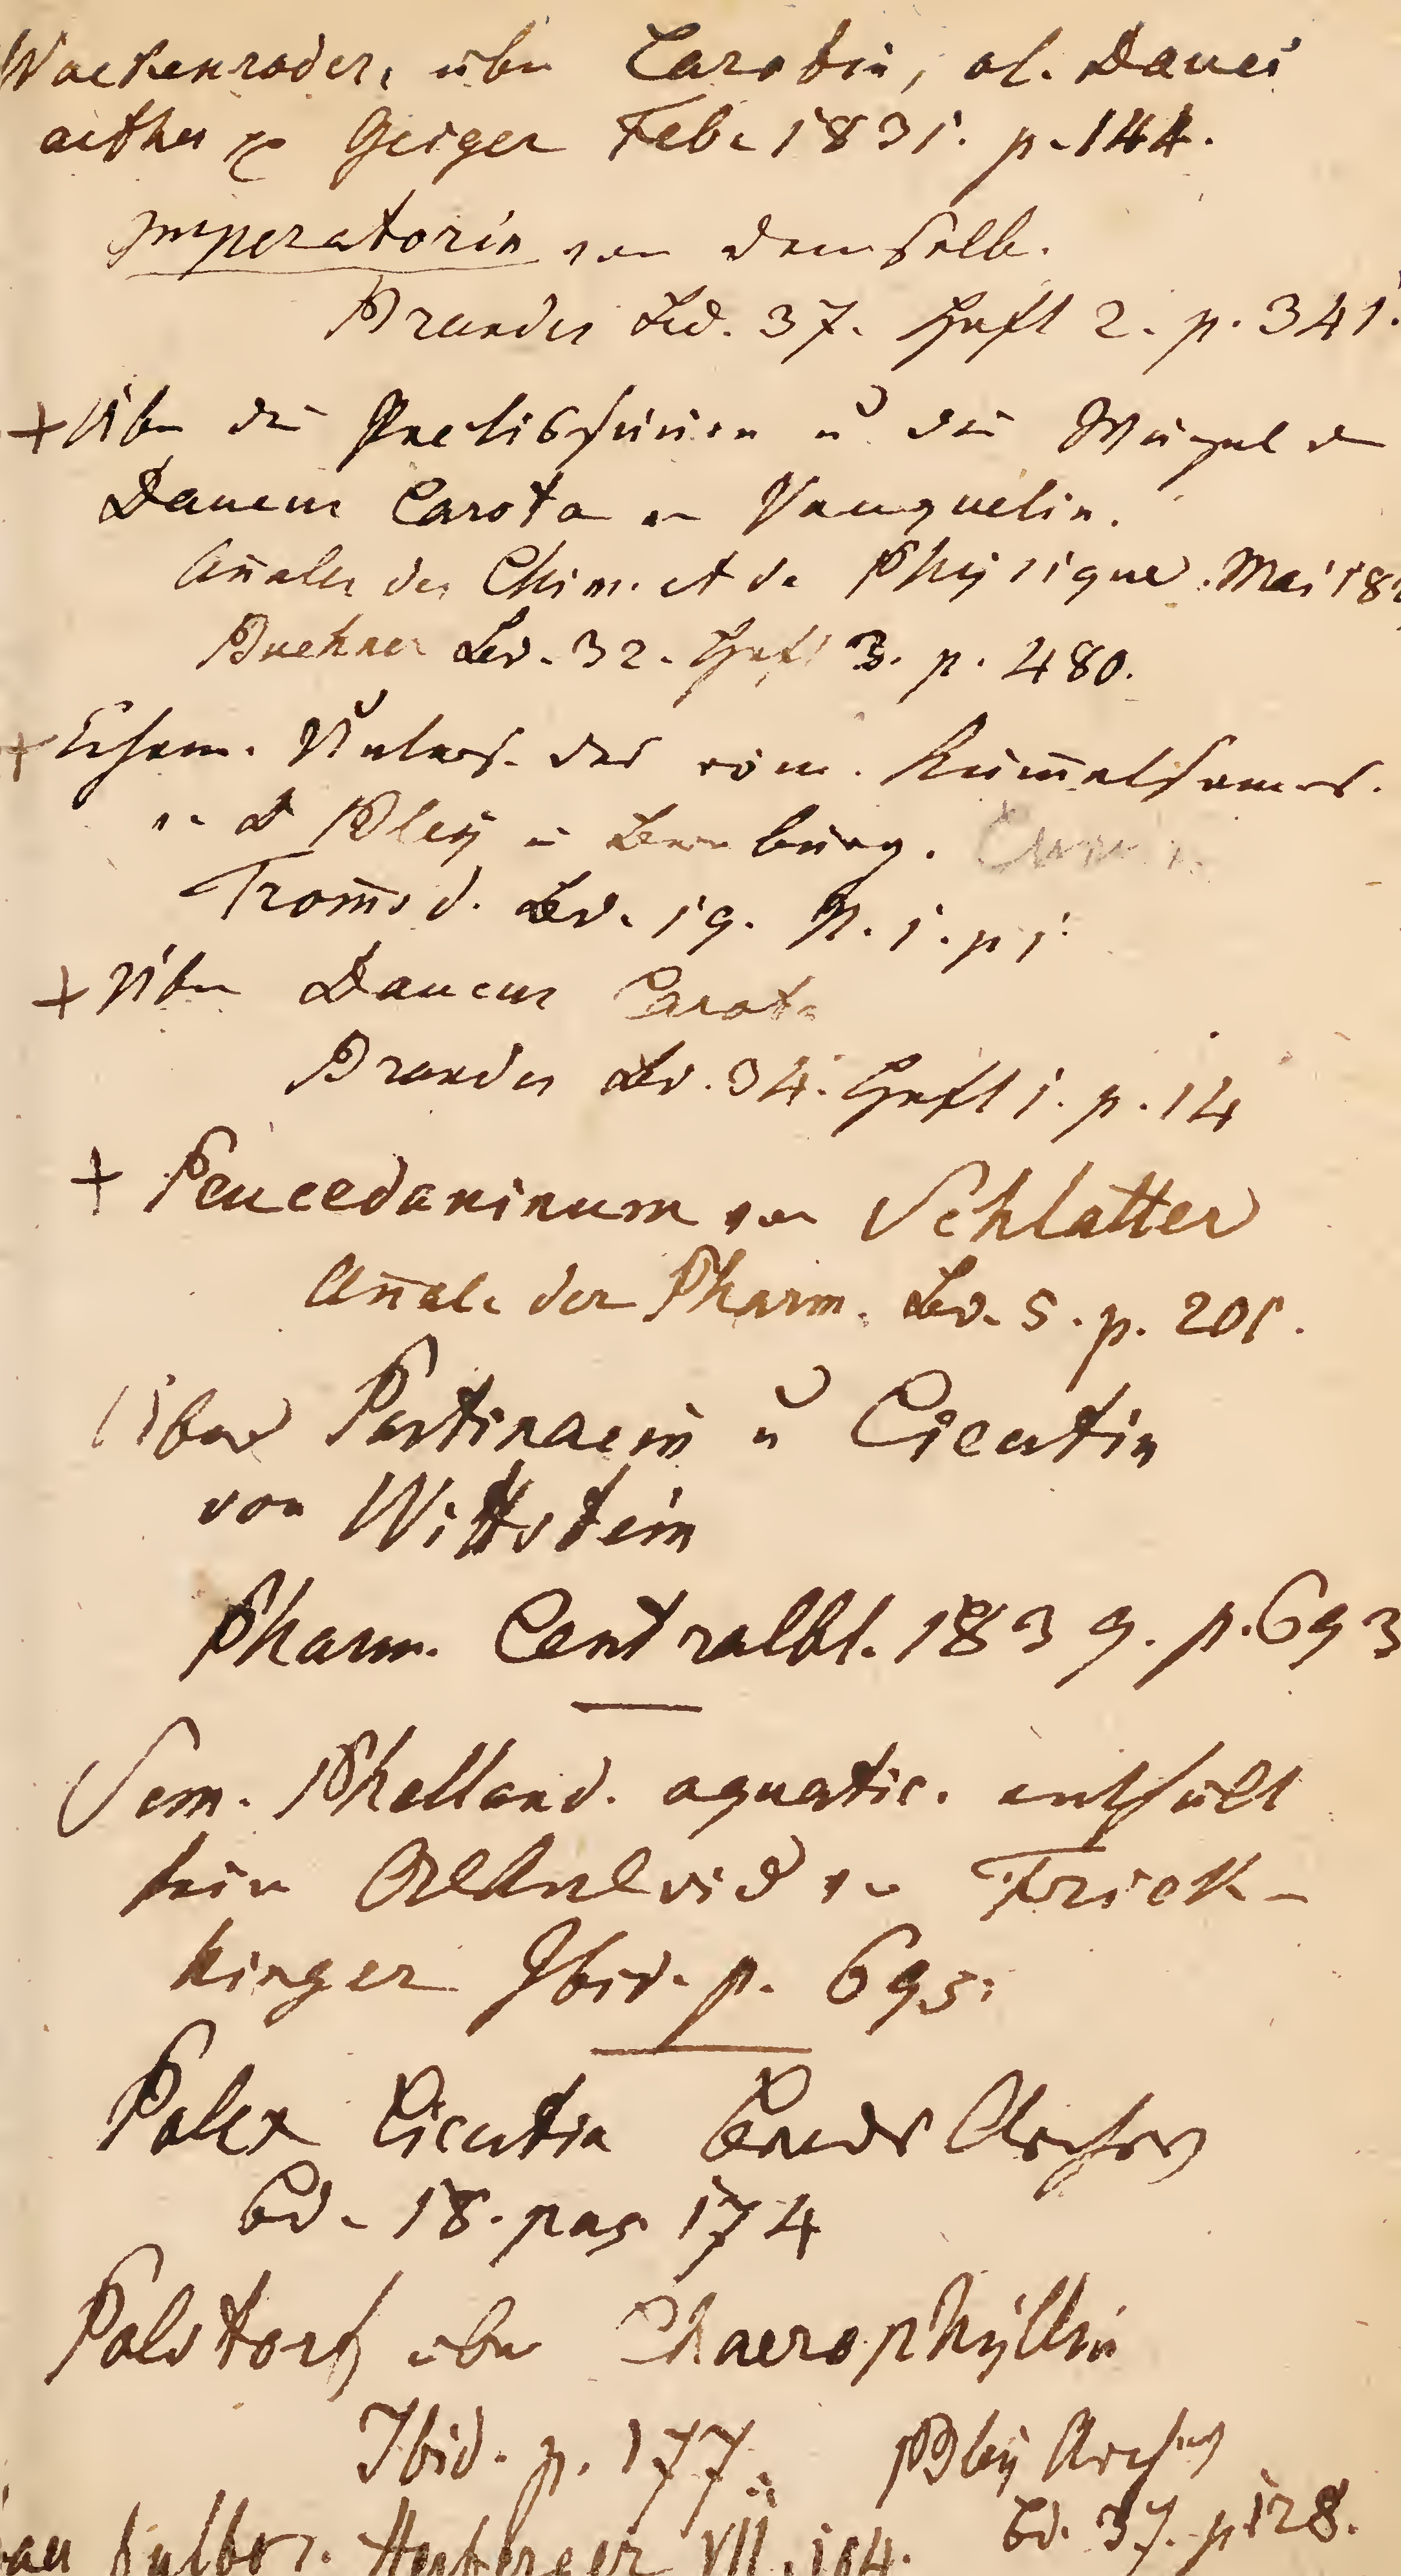 Wackenroder, über Carotin, ol. Dauci
aether Geiger Febr 1831. p. 144.
Imperatorin von demselb.
Brandes Bd. 37. Heft 2. p. 341.
+ Über die u die Wurzel d
Daucus Carota v Vauquelin.
Annales des Chim. et de Physique. Mai 18
Buchner Bd. 32. Heft 3. p. 480.
+ Chem. Unters. des röm. Kümmelsamens.
v. D Bley in Bernburg.
Trom̅sd. Bd. 19. N. 1. p 1.
+ Über Daucus Carota
Brandes Bd. 34. Heft 1. p. 14
+ Peucedaninum von Schlatter
Annale der Pharm. Bd. 5. p. 201.
Über Pastinacin u Cicutin
von Wittstein
Pharm. Centralbl. 1839. p. 693
Sem. Phelland. aquatic. enthält
kein Alkaloid v Frick-
hinger Ibid. p. 695.
Polex Cicutin Brands Archiv
Bd. 18. pag 174
Polstorf über Chaerophyllin
Ibid. p. 177.
Bley Archiv
Bd. 37. p 128.
Herberger VII. 104.